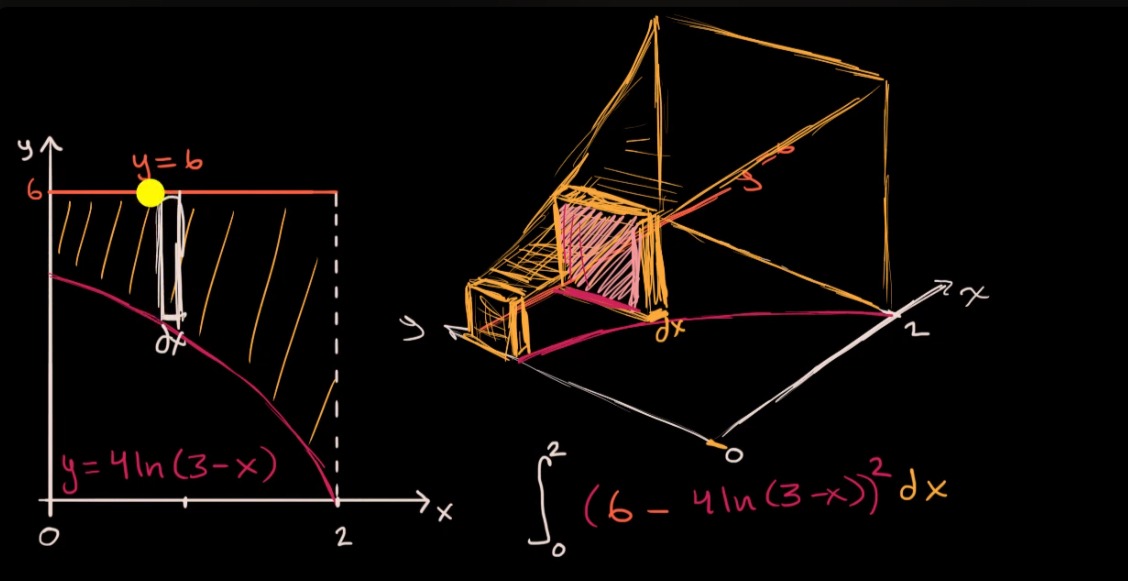 y
y = 6
6
dx
y = 4 ln (3 - x)
x
0
2
y = 6
y
dx
x
2
0
∫₀² (6 - 4 ln (3 - x))² dx